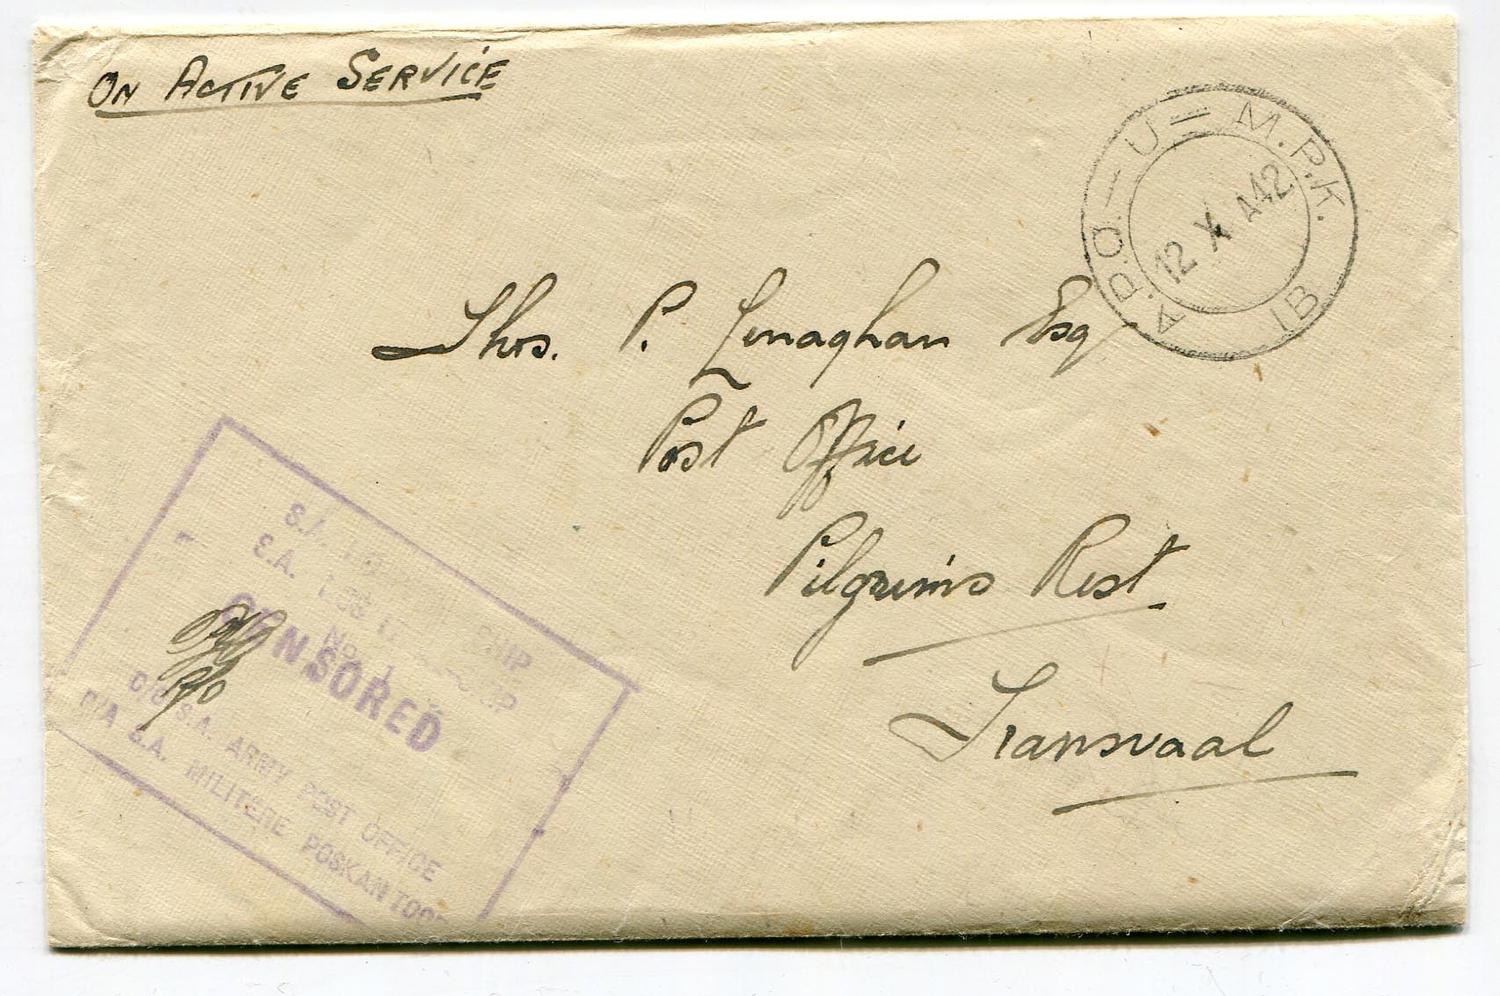 ON ACTIVE SERVICE
A.P.O. — U — M.P.K.
12 X A42
1B
Thos. P. Lenaghan Esq
Post Office
Pilgrims Rest
Transvaal
S.A. HOS SHIP
S.A. HOS
No. 1
CENSORED
D/O S.A. ARMY POST OFFICE
D/A S.A. MILITERE POSKANTOOR